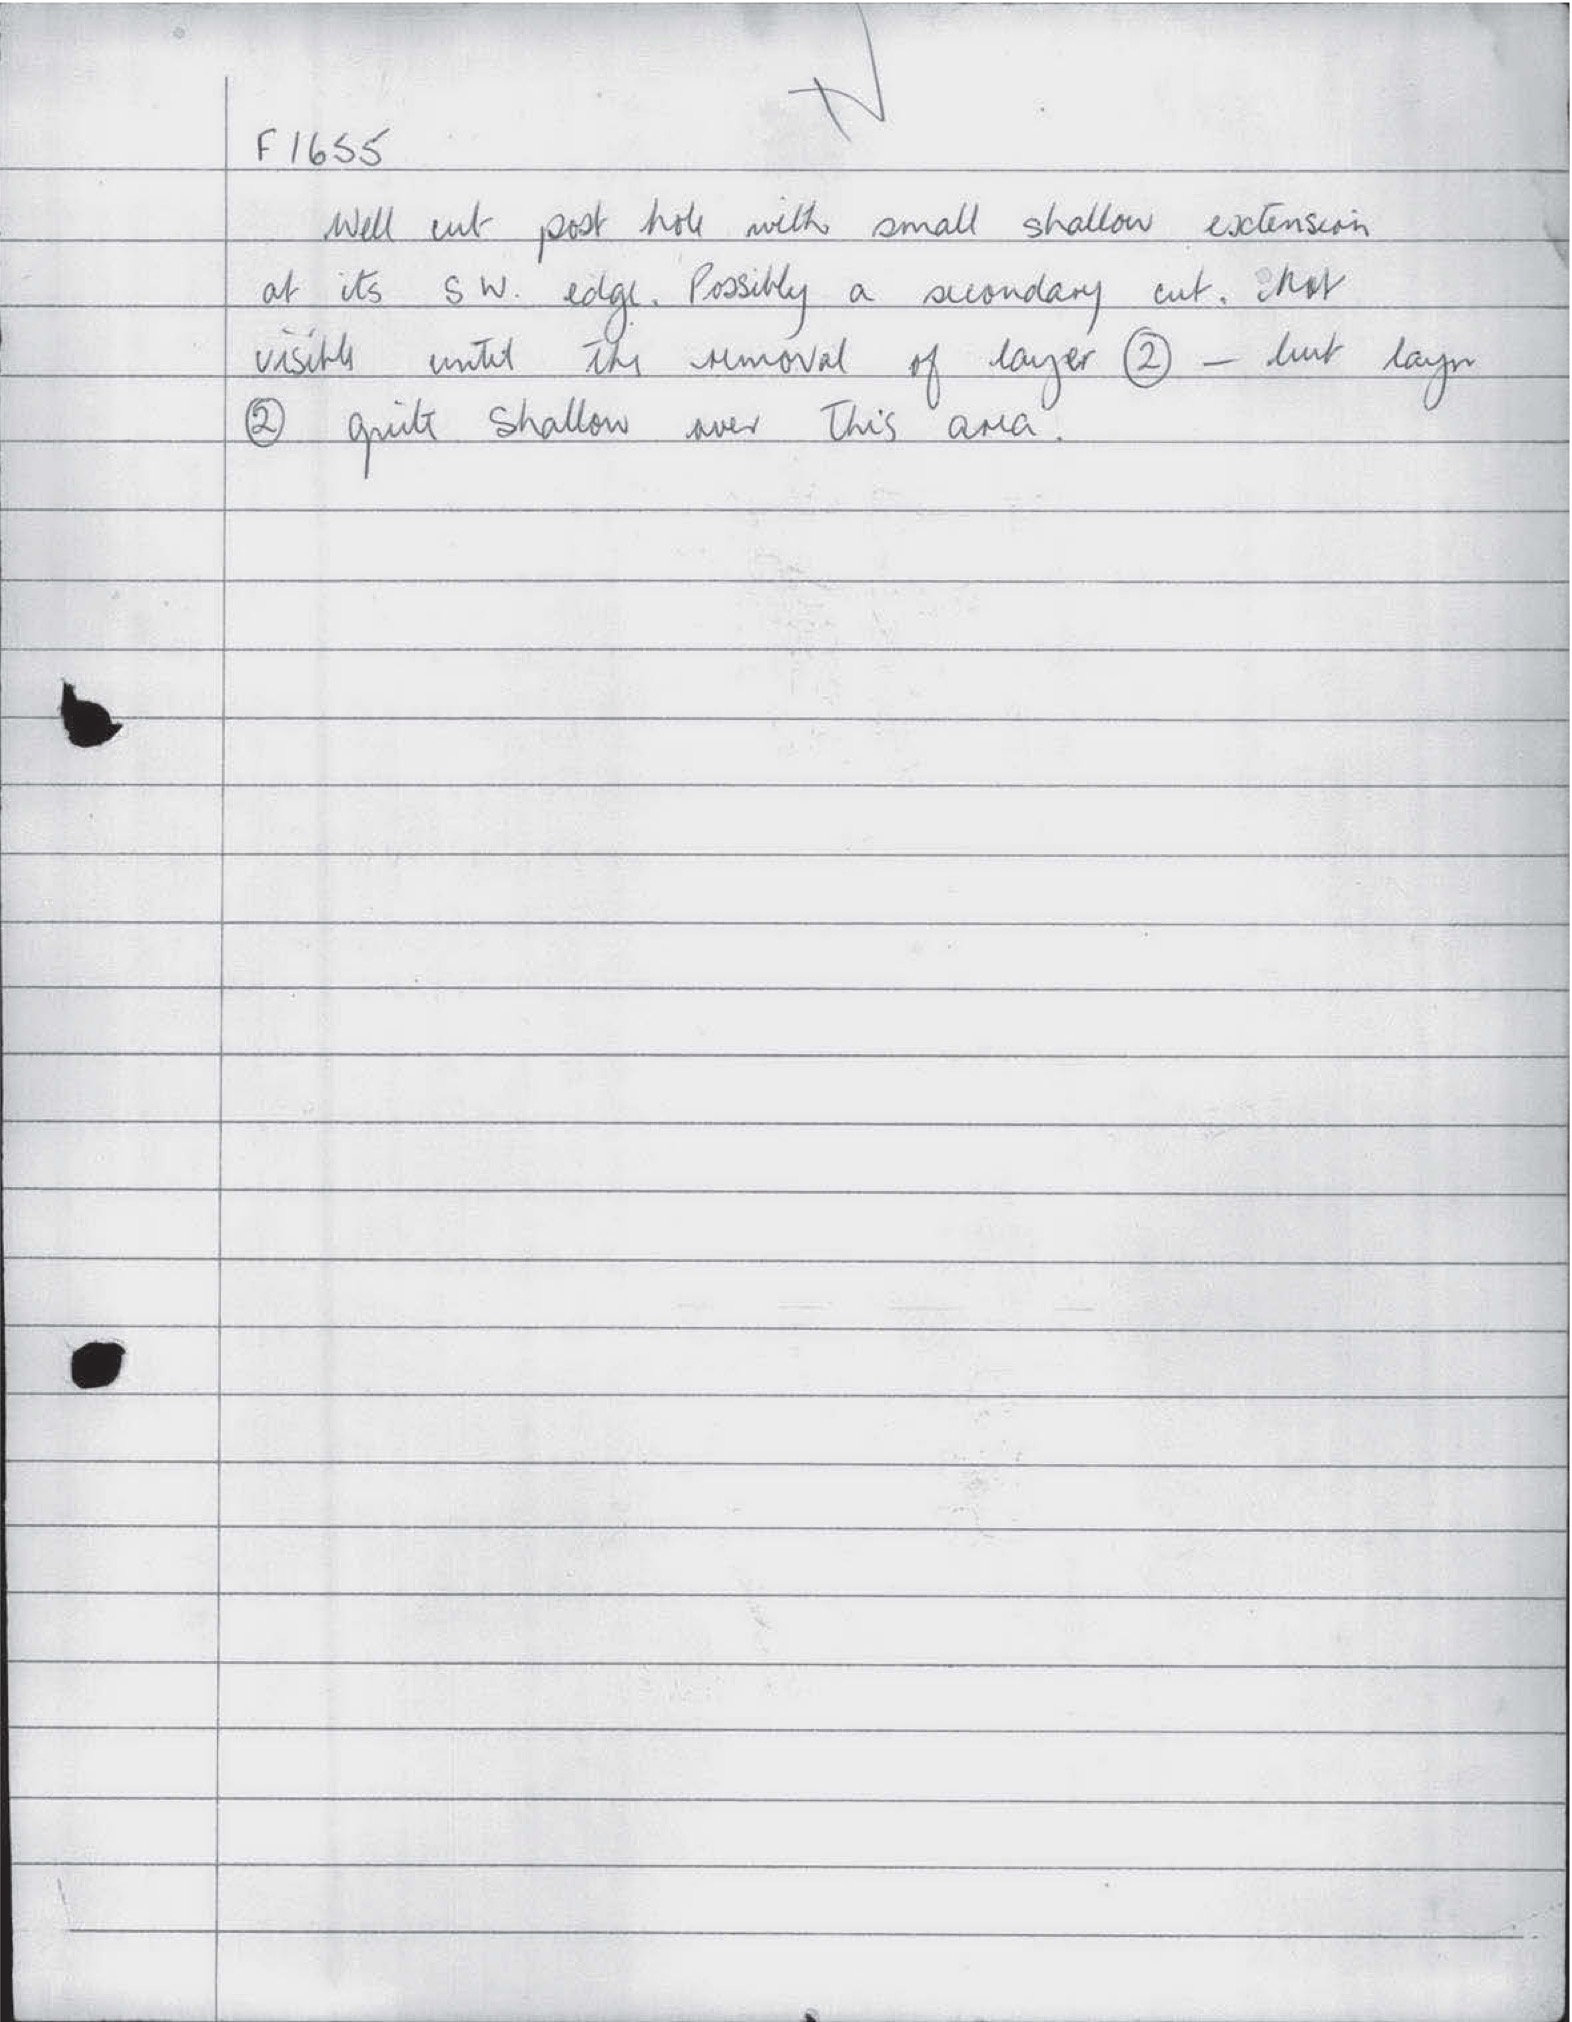 F1655
Well cut post hole with small shallow extension
at its SW. edge. Possibly a secondary cut. Not
visible until the removal of layer ② — but layer
② quite shallow over this area.